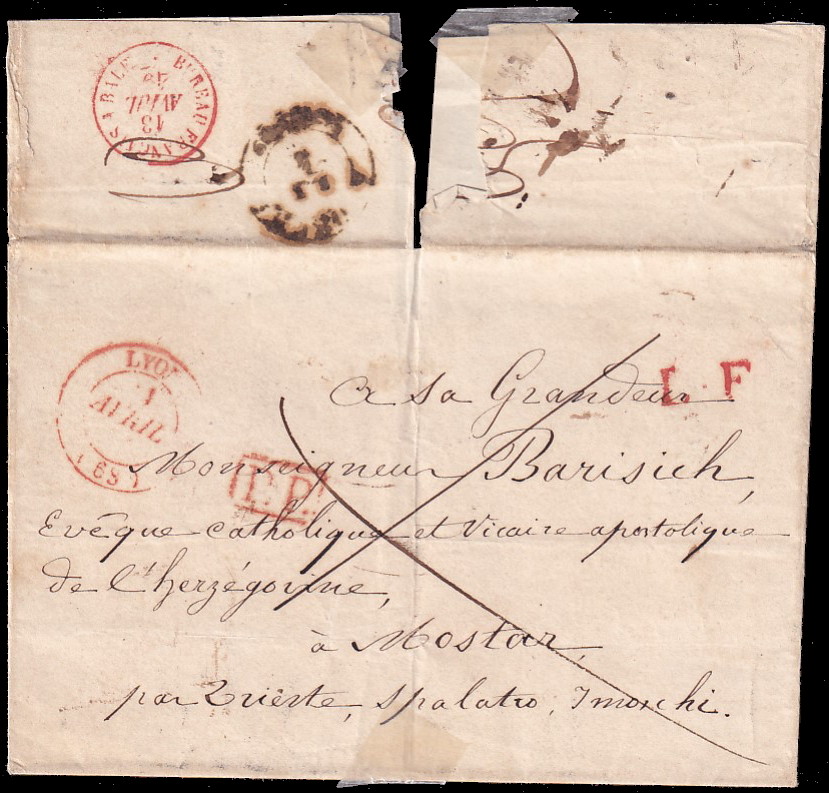 BUREAU FRANÇAIS A BALE
13
AVRIL
LYON
1
AVRIL
(68)
L. F
P.P.
A Sa Grandeur
Monseigneur Barisich,
Evêque catholique et Vicaire apostolique
de l'herzégovine,
à Mostar,
par Trieste, Spalatro, Imoschi.